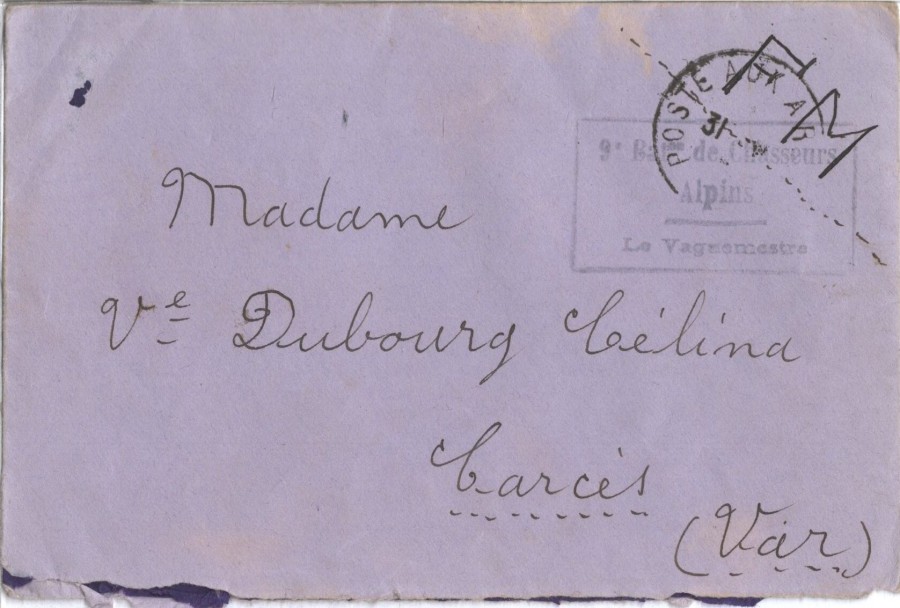 FM
POSTE AUX AR
31
9e Baton de Chasseurs
Alpins
Le Vaguemestre
Madame
Ve Dubourg Célina
Carcès
(Var)